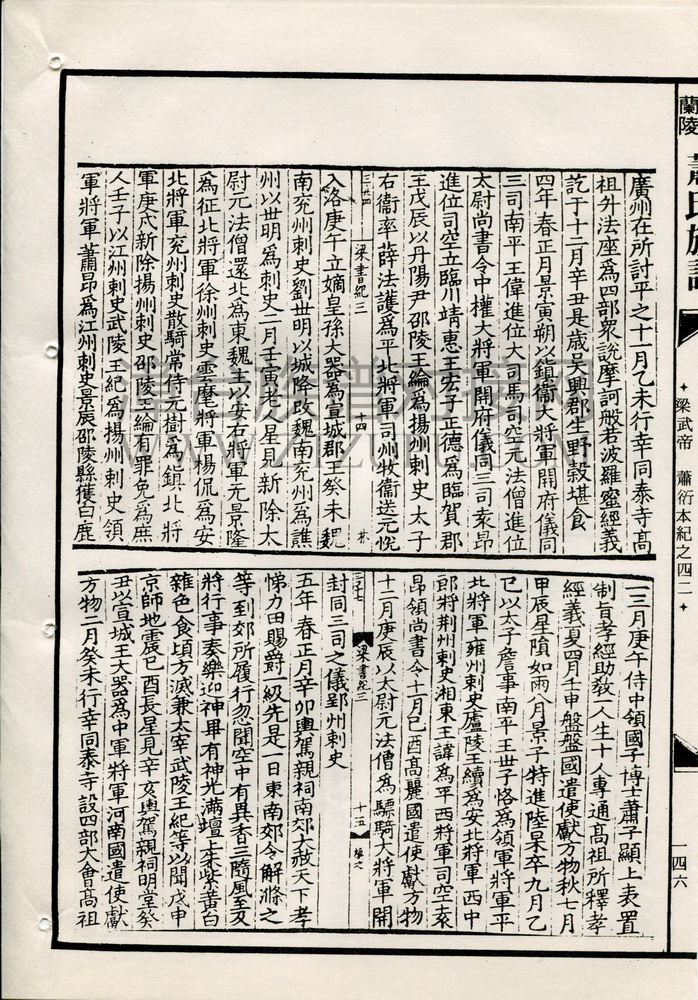 蘭陵
梁武帝 蕭衍本紀之四二
一四六
廣州在所討平之十一月乙未行幸同泰寺高
祖升法座為四部衆說摩訶般若波羅蜜經義
訖于十二月辛丑是歲吳興郡生野穀堪食
四年春正月景寅朔以鎮衞大將軍開府儀同
三司南平王偉進位大司馬司空元法僧進位
太尉尚書令中權大將軍開府儀同三司袁昂
進位司空立臨川靖惠王宏子正德為臨賀郡
王戊辰以丹陽尹邵陵王綸為揚州刺史太子
右衞率薛法護為平北將軍司州牧衞送元悅
梁書紀三 十四
入洛庚午立嫡皇孫大器為宣城郡王癸未魏
南兗州刺史劉世明以城降改魏南兗州為譙
州以世明為刺史二月壬寅老人星見新除太
尉元法僧還北為東魏主以安右將軍元景隆
為征北將軍徐州刺史雲麾將軍楊侃為安
北將軍兗州刺史散騎常侍元樹為鎮北將
軍庚戌新除揚州刺史邵陵王綸有罪免為庶
人壬子以江州刺史武陵王紀為揚州刺史領
軍將軍蕭昂為江州刺史景辰邵陵縣獲白鹿
一三月庚午侍中領國子博士蕭子顯上表置
制旨孝經助教一人生十人專通高祖所釋孝
經義夏四月壬申盤盤國遣使獻方物秋七月
甲辰星隕如雨八月景子特進陸杲卒九月乙
巳以太子詹事南平王世子恪為領軍將軍平
北將軍雍州刺史廬陵王續為安北將軍西中
郎將荊州刺史湘東王諱為平西將軍司空袁
昂領尚書令十一月己酉高麗國遣使獻方物
十二月庚辰以太尉元法僧為驃騎大將軍開
梁書紀三 十五
封同三司之儀郢州刺史
五年春正月辛卯輿駕親祠南郊大赦天下孝
悌力田賜爵一級先是一日東南郊令解滌之
等到郊所履行忽聞空中有異香三隨風至及
將行事奏樂迎神畢有神光滿壇上朱紫黃白
雜色食頃方滅兼太宰武陵王紀等以聞戊申
京師地震己酉長星見辛亥輿駕親祠明堂癸
丑以宣城王大器為中軍將軍河南國遣使獻
方物二月癸未行幸同泰寺設四部大會高祖